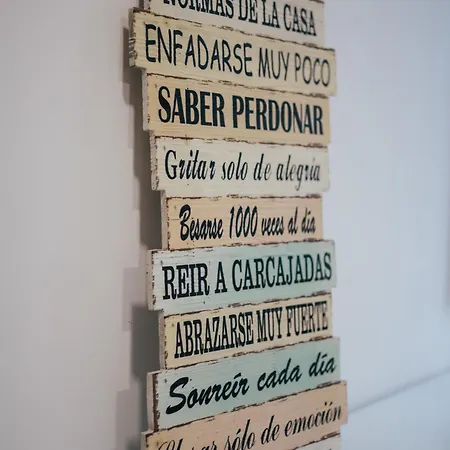 NORMAS DE LA CASA
ENFADARSE MUY POCO
SABER PERDONAR
Gritar solo de alegría
Besarse 1000 veces al día
REIR A CARCAJADAS
ABRAZARSE MUY FUERTE
Sonreír cada día
Llorar sólo de emoción